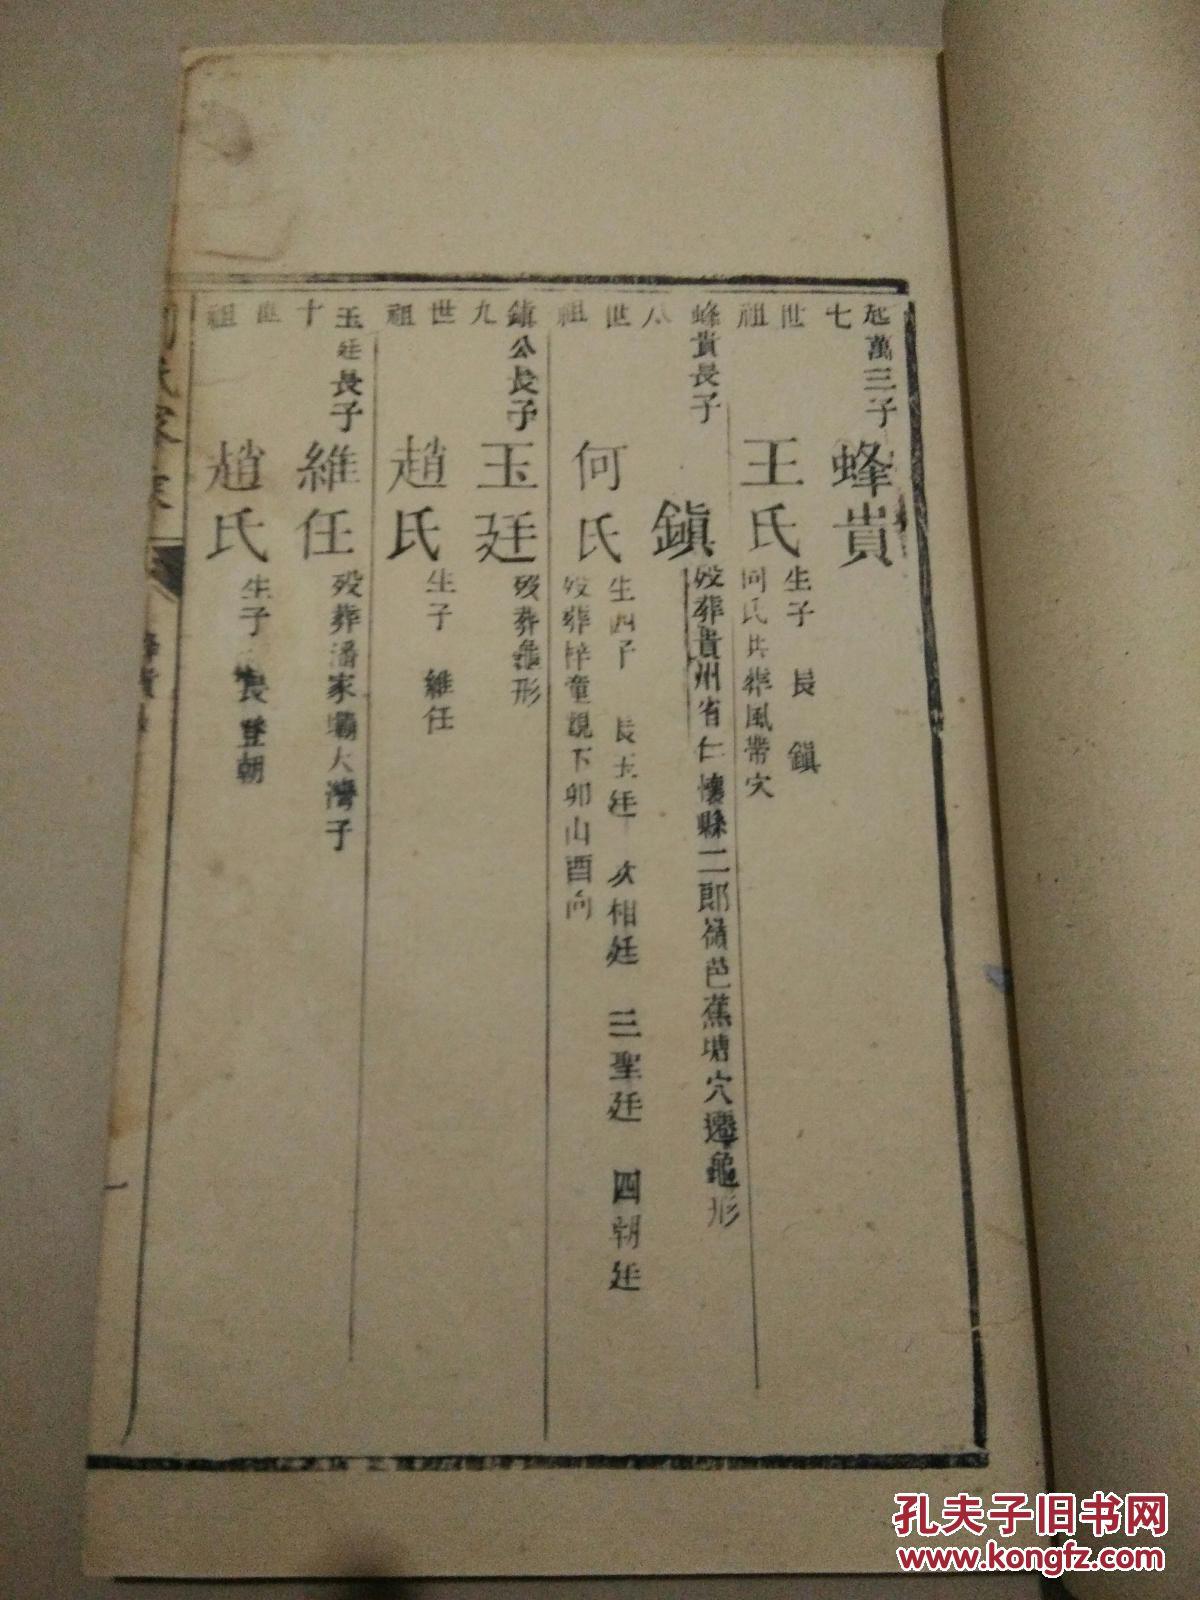 起萬三子
七世祖
蜂貴
王氏
生子 長 鎮
何氏共葬風帶穴
蜂貴長子
八世祖
鎮
歿葬貴州省仁懷縣二郎嶺芭蕉塘穴遷龜形
何氏
生四子 長玉廷 次相廷 三聖廷 四朝廷
歿葬梓童觀下卯山酉向
鎮公長子
九世祖
玉廷
歿葬龜形
趙氏
生子 維任
玉廷長子
十世祖
維任
歿葬潘家壩大灣子
趙氏
生子 長登朝
蜂貴
一
孔夫子旧书网
www.kongfz.com